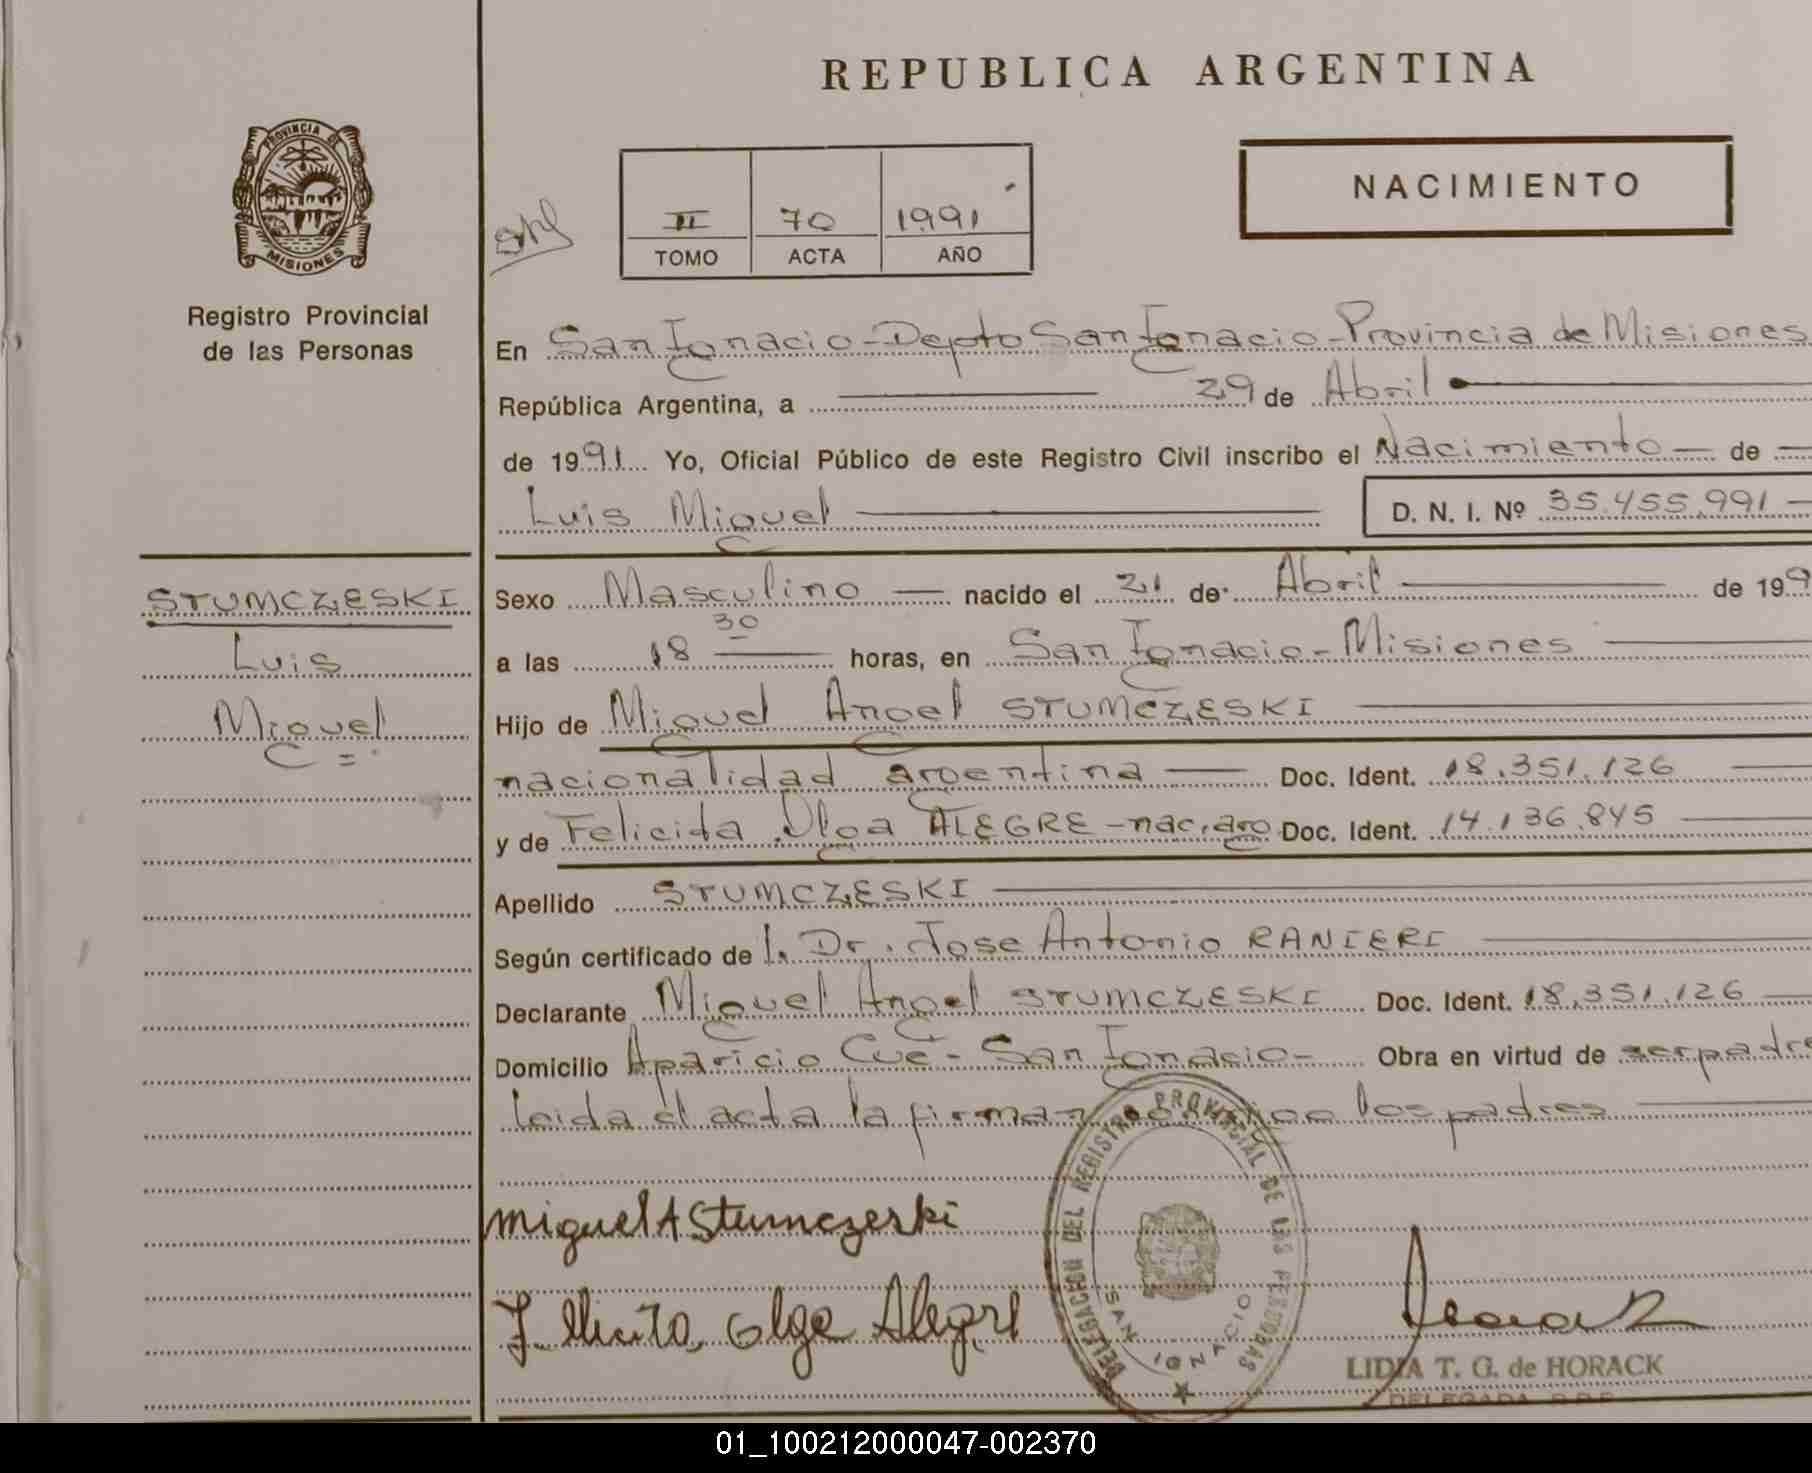 REPUBLICA ARGENTINA
PROVINCIA DE
MISIONES
Registro Provincial
de las Personas
II 70 1991
TOMO ACTA AÑO
NACIMIENTO
En San Ignacio - Depto San Ignacio - Provincia de Misiones
República Argentina, a 29 de Abril
de 1991 Yo, Oficial Público de este Registro Civil inscribo el Nacimiento de
Luis Miguel D. N. I. Nº 35.455.991
STUMCZESKI
Luis
Miguel
Sexo Masculino nacido el 21 de Abril de 199
a las 18 30 horas, en San Ignacio - Misiones
Hijo de Miguel Angel STUMCZESKI
nacionalidad argentina Doc. Ident. 18.351.126
y de Felicita Olga ALEGRE - nac. arg Doc. Ident. 14.136.845
Apellido STUMCZESKI
Según certificado de l. Dr. Jose Antonio RANIERI
Declarante Miguel Angel STUMCZESKI Doc. Ident. 18.351.126
Domicilio Aparicio Cue - San Ignacio - Obra en virtud de ser padre
leida el acta la firman los padres
Miguel A Stumczeski
Olga Alegre
DELEGACION DEL REGISTRO PROVINCIAL DE LAS PERSONAS
SAN IGNACIO
LIDIA T. G. de HORACK
DELEGADA R.P.P.
01_100212000047-002370